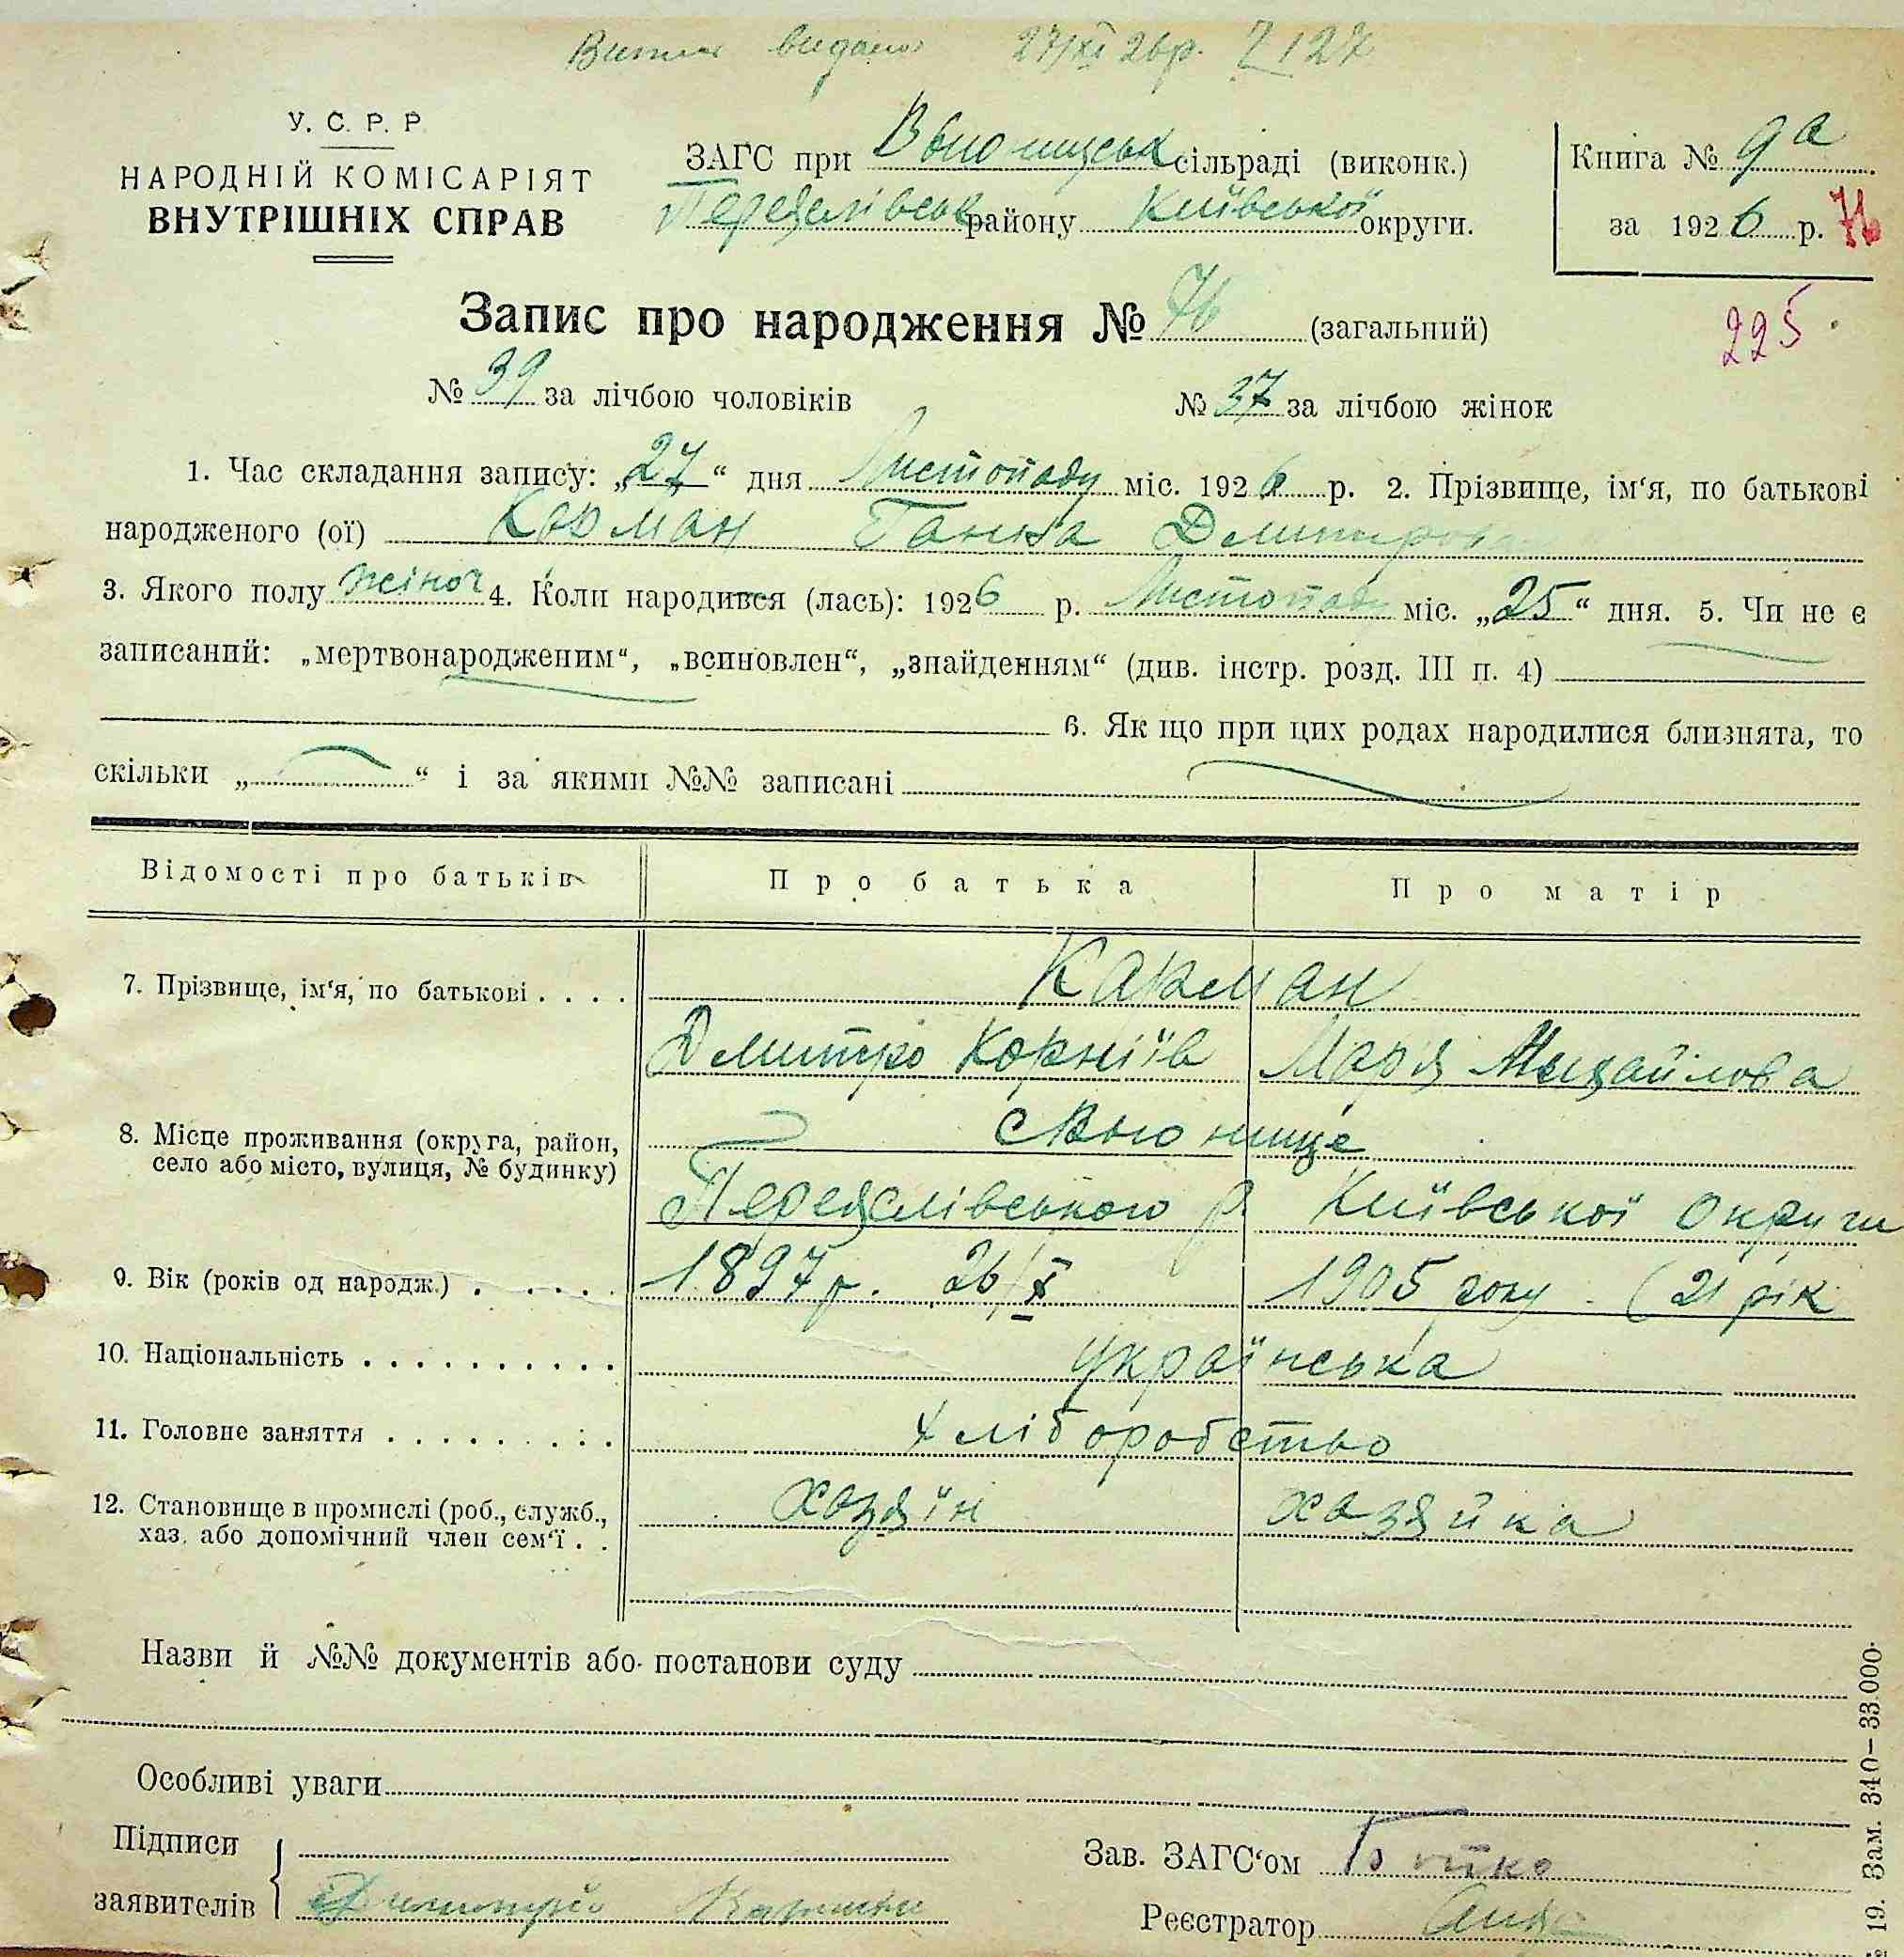 Витяг видано 27/XI 26р. № 127
У. С. Р. Р
НАРОДНІЙ КОМІСАРІЯТ
ВНУТРІШНІХ СПРАВ
ЗАГС при Вьюнищськ сільраді (виконк.)
Переяслівськ району Київської округи.
Книга № 9а
за 1926 р. 76
Запис про народження № 76 (загальний)
225
№ 39 за лічбою чоловіків № 37 за лічбою жінок
1. Час складання запису: „27“ дня Листопаду міс. 1926 р. 2. Прізвище, ім‘я, по батькові
народженого (ої) Карман Ганна Дмитрова
3. Якого полу жіноч 4. Коли народився (лась): 1926 р. Листопад міс. „25“ дня. 5. Чи не є
записаний: „мертвонародженим“, „всиновлен“, „знайденням“ (див. інстр. розд. III п. 4)
6. Як що при цих родах народилися близнята, то
скільки „ “ і за якими №№ записані
Відомості про батьків Про батька Про матір
7. Прізвище, ім‘я, по батькові . . . . Карман
Дмитро Корніїв Марія Михайлова
8. Місце проживання (округа, район, с Вьюнище
село або місто, вулиця, № будинку)
Переяслівського р. Київської Округи
9. Вік (років од народж.) . . . . . 1897 р. 26/X 1905 року (21 рік
10. Національність . . . . . . . . . . українська
11. Головне заняття . . . . . . . . . хліборобство
12. Становище в промислі (роб., служб., хазяїн хазяйка
хаз. або допомічний член сем‘ї . .
Назви й №№ документів або постанови суду
Особливі уваги
Підписи
заявителів Димитрій Карман
Зав. ЗАГС‘ом Бойко
Реєстратор
19. Зам. 340–33.000.